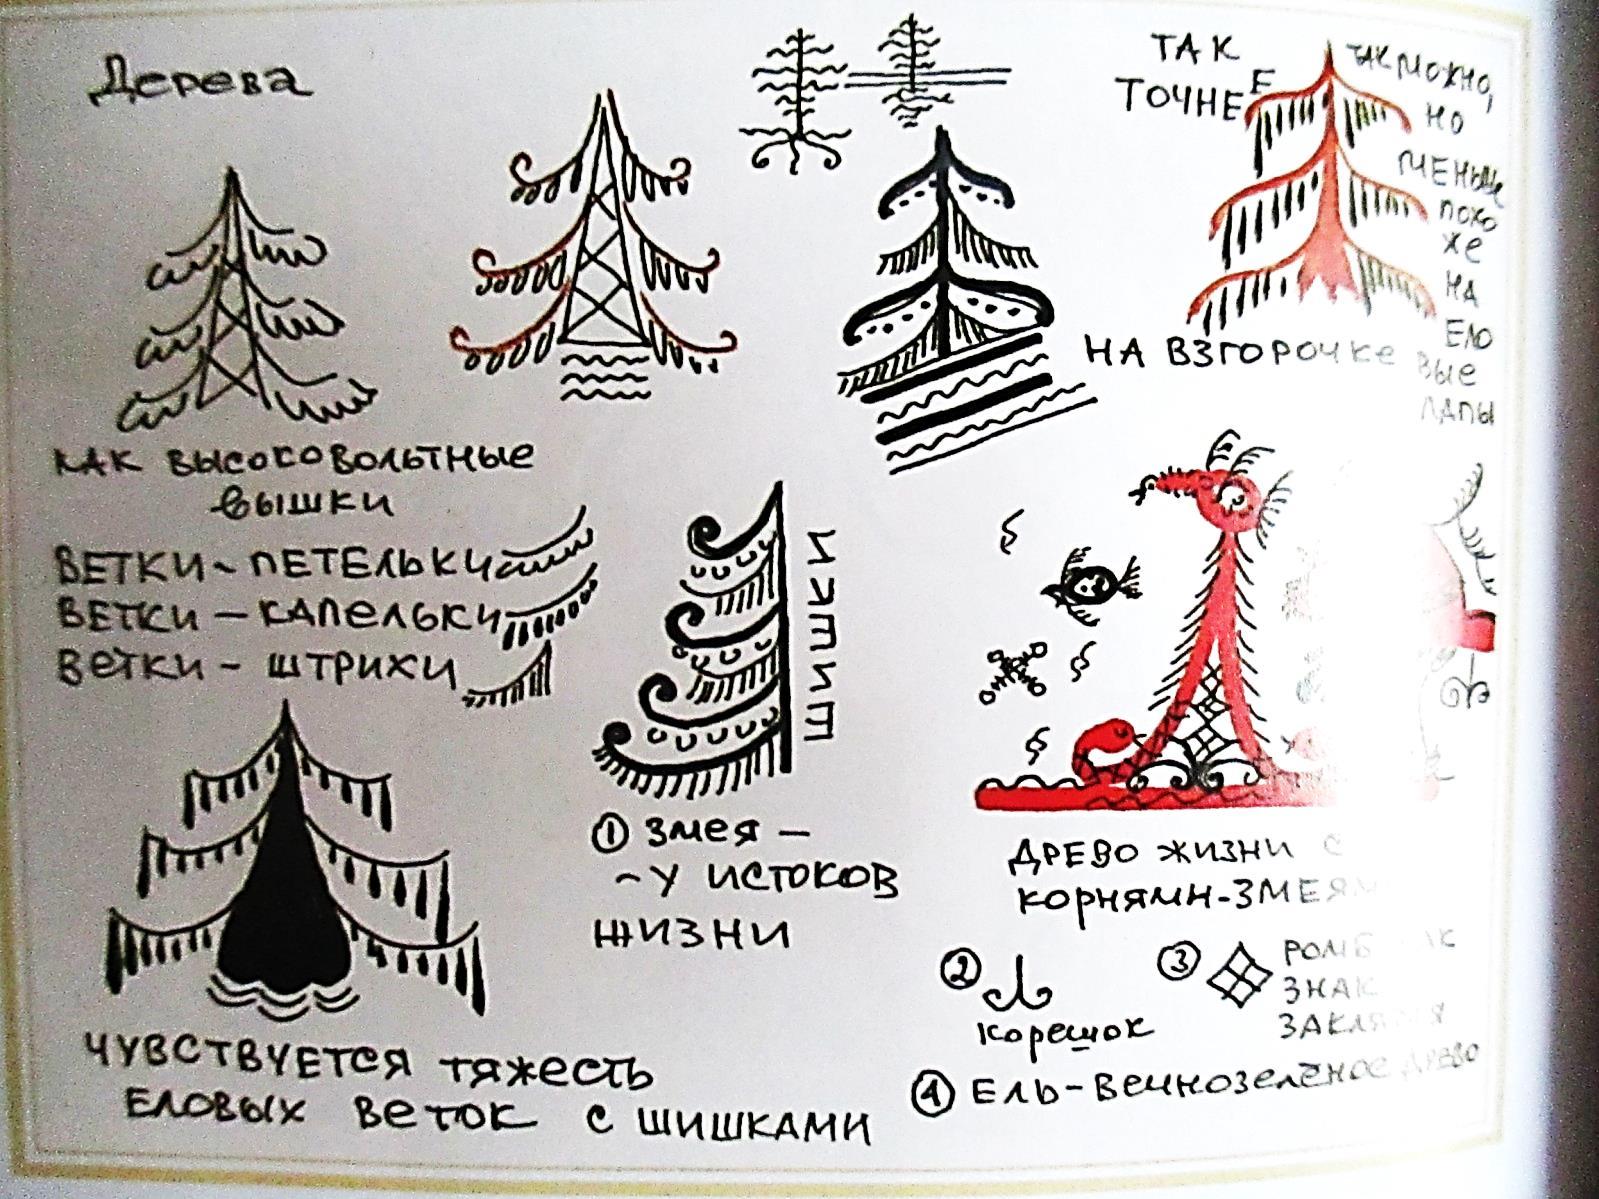 Дерева
ТАК
ТОЧНЕЕ
ТАК МОЖНО,
НО
МЕНЬШЕ
ПОХО
ЖЕ
НА
ЕЛО
ВЫЕ
ЛАПЫ
НА ВЗГОРОЧКЕ
КАК ВЫСОКОВОЛЬТНЫЕ
ВЫШКИ
ВЕТКИ - ПЕТЕЛЬКИ
ВЕТКИ - КАПЕЛЬКИ
ВЕТКИ - ШТРИХИ
ИЛЛШИШ
① ЗМЕЯ -
- У ИСТОКОВ
ЖИЗНИ
ДРЕВО ЖИЗНИ С
КОРНЯМИ-ЗМЕЯМ
② КОРЕШОК
③ РОМБ
ЗНАК
④ ЕЛЬ-ВЕЧНОЗЕЛЁНОЕ ДРЕВО
ЧУВСТВУЕТСЯ ТЯЖЕСТЬ
ЕЛОВЫХ ВЕТОК С ШИШКАМИ